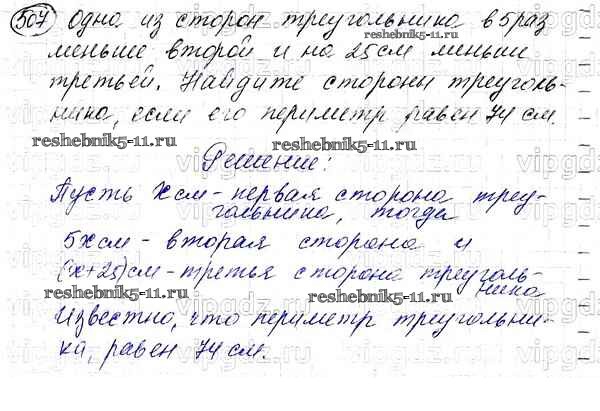 507 Одна из сторон треугольника в 5 раз
меньше второй и на 25 см меньши
третьей. Найдите стороны треуголь-
ника, если его периметр равен 74 см.
reshebnik5-11.ru
reshebnik5-11.ru
Решение:
Пусть x см - первая сторона треу-
гольника, тогда
5x см - вторая сторона и
(x+25) см - третья сторона треуголь-
ника
reshebnik5-11.ru
reshebnik5-11.ru
Известно, что периметр треугольни-
ка, равен 74 см.
vipgdz.ru